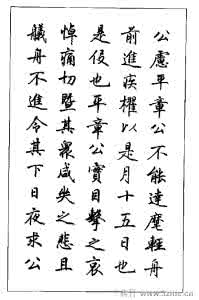 公處平章公不能達麾輕舟
前進疾櫂以是月十五日也
是役也平章公實目擊之哀
悼痛切暨其衆咸矢之悲且
艤舟不進令其下日夜求公